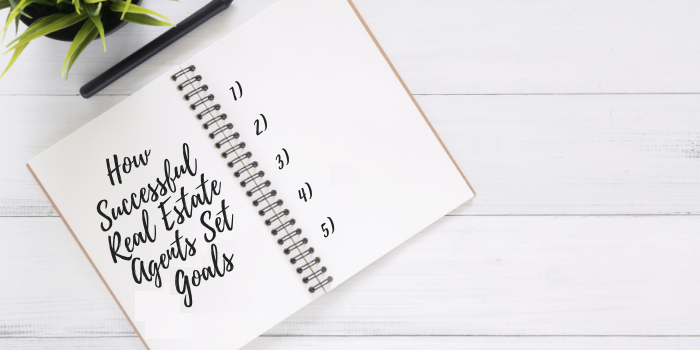 How
Successful
Real Estate
Agents Set
Goals
1)
2)
3)
4)
5)